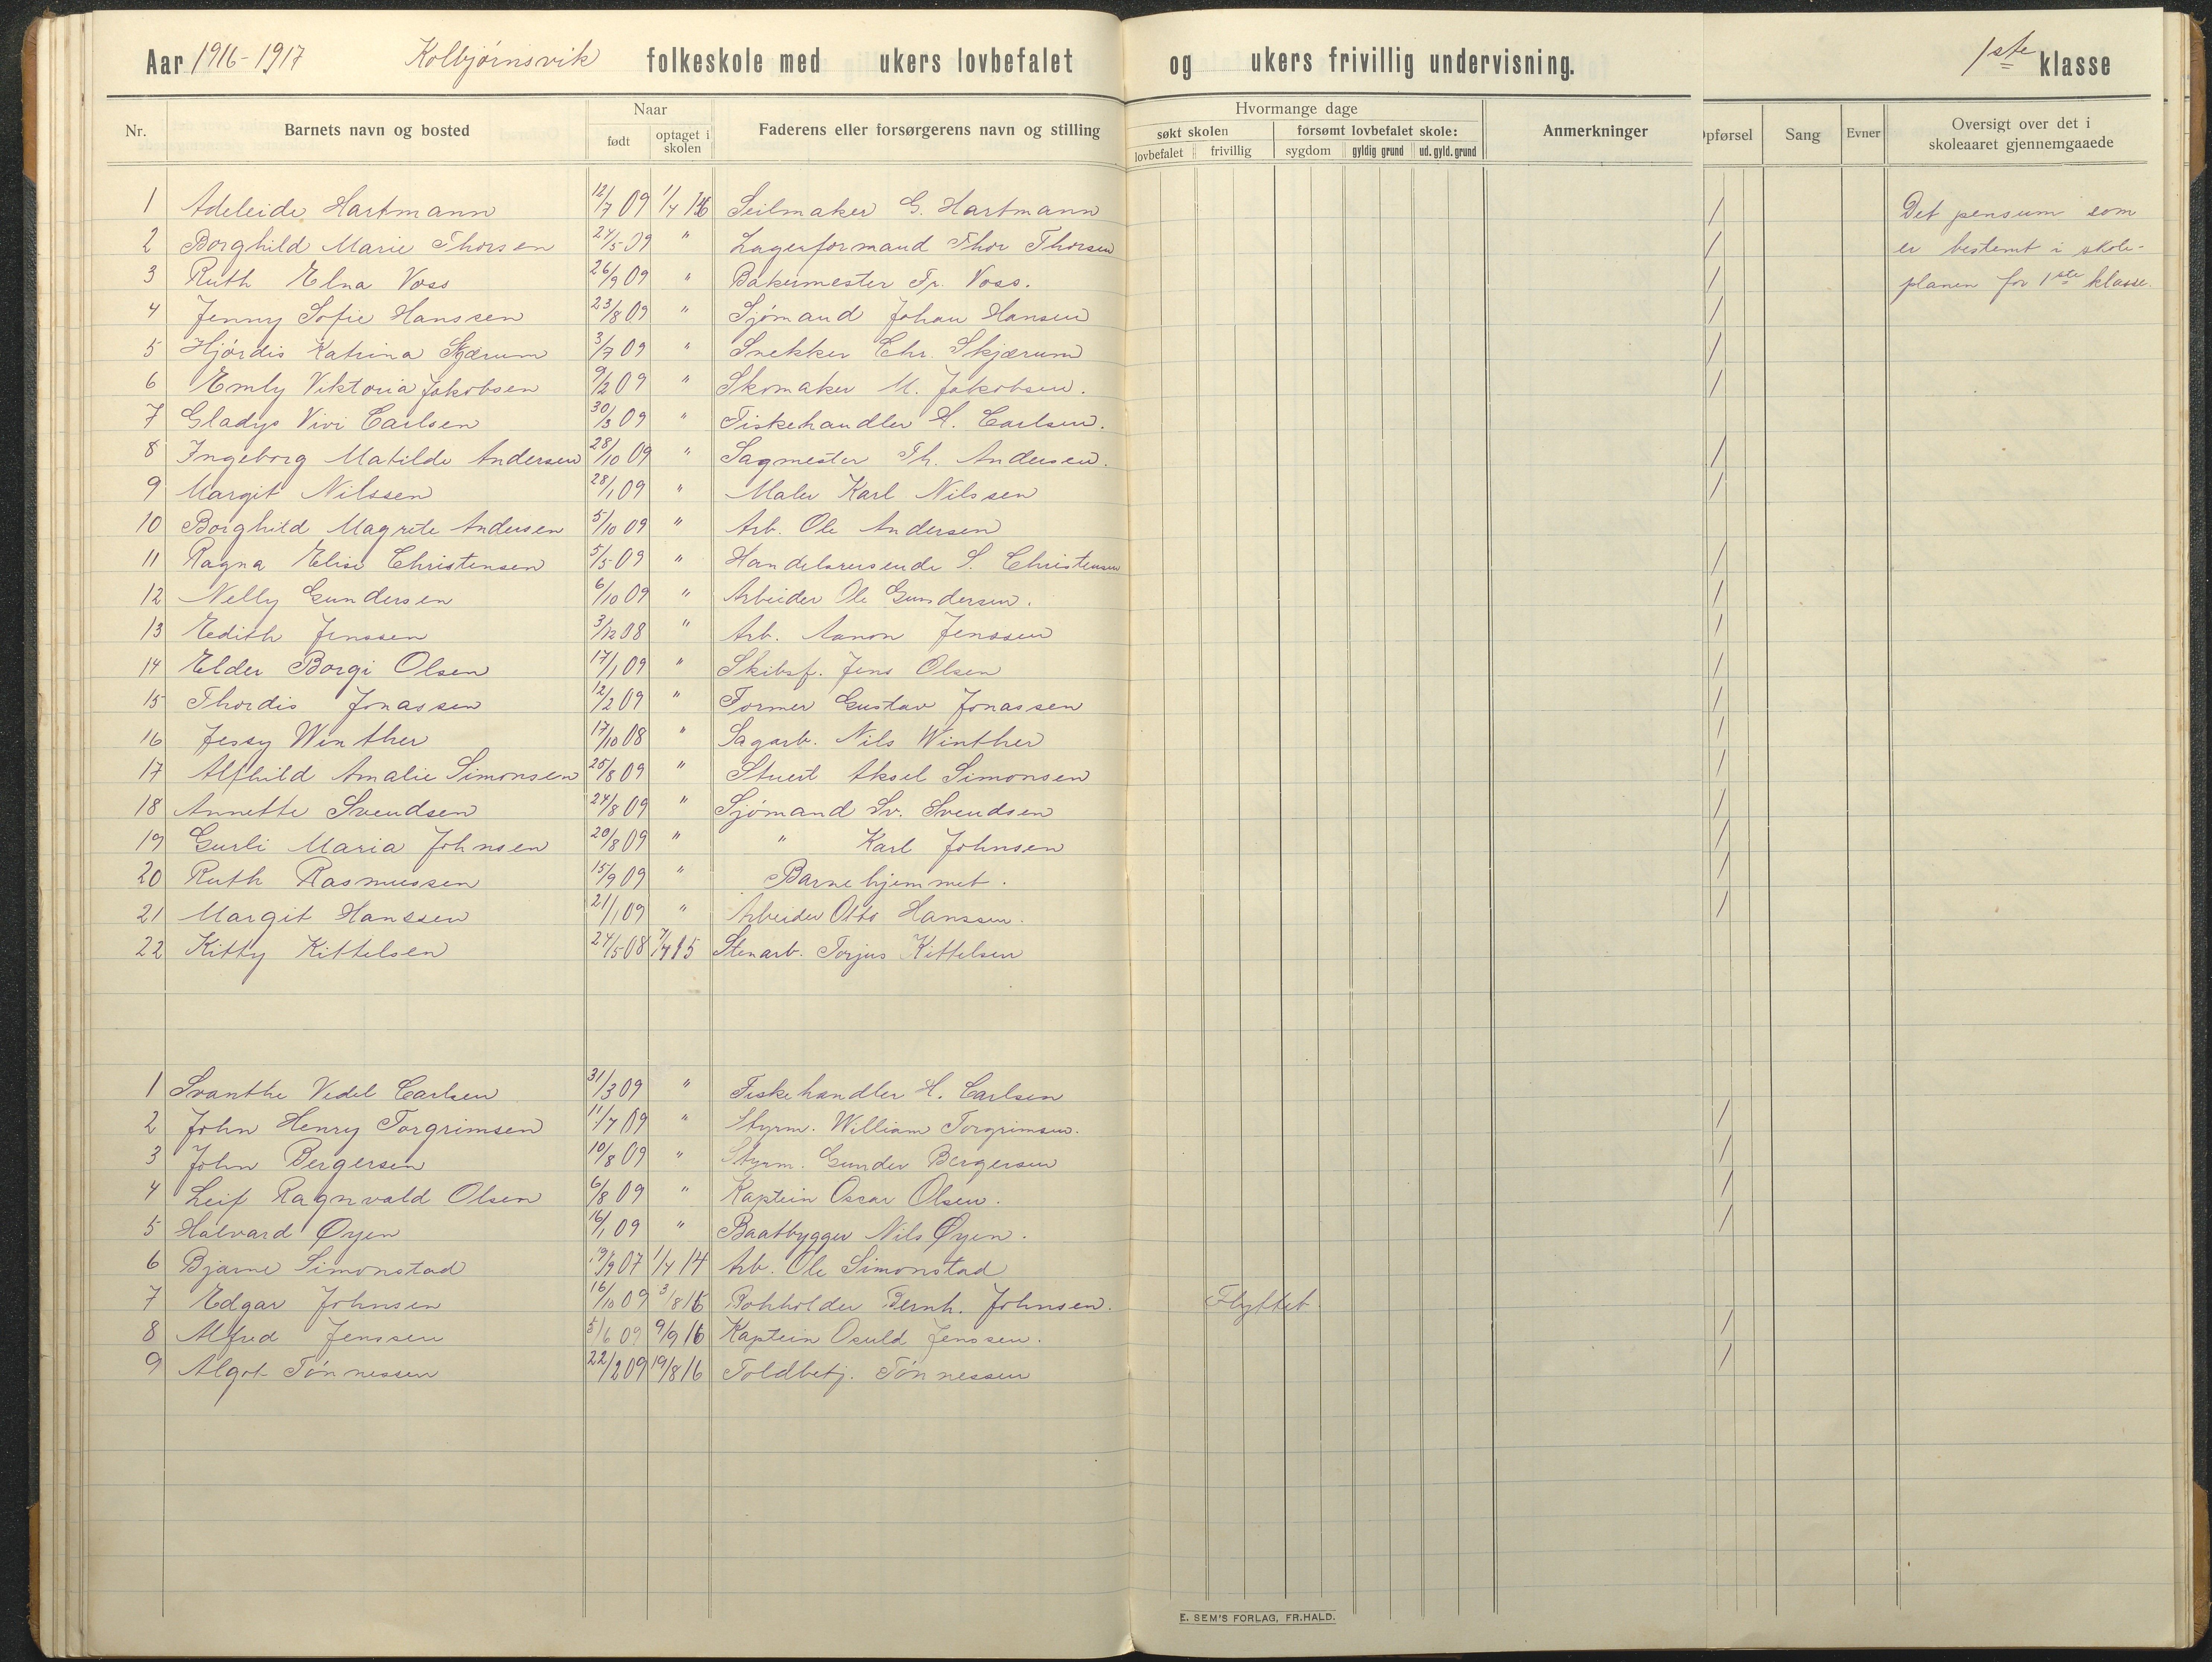 Aar 1916-1917 Kolbjørnsvik folkeskole med ukers lovbefalet og ukers frivillig undervisning. 1ste klasse
Nr. Barnets navn og bosted Naar født optaget i skolen Faderens eller forsørgerens navn og stilling Hvormange dage søkt skolen lovbefalet frivillig forsømt lovbefalet skole: sygdom gyldig grund ud. gyld. grund Anmerkninger Opførsel Sang Evner Oversigt over det i skoleaaret gjennemgaaede
1 Adeleide Hartmann 12/7 09 1/4 16 Seilmaker G. Hartmann / Det pensum som
2 Borghild Marie Thorsen 24/5 09 " Lagerformand Thor Thorsen / er bestemt i skole-
3 Ruth Elna Voss 26/9 09 " Bakermester Fr. Voss. / planen for 1ste klasse.
4 Jenny Sofie Hanssen 23/8 09 " Sjømand Johan Hansen /
5 Hjørdis Katrina Skjærum 3/7 09 " Snekker Chr. Skjærum /
6 Emly Viktoria Jakobsen 9/2 09 " Skomaker M. Jakobsen. /
7 Gladys Vivi Carlsen 30/3 09 " Fiskehandler H. Carlsen.
8 Ingeborg Matilde Andersen 28/10 09 " Sagmester Th. Andersen. /
9 Margit Nilssen 28/1 09 " Maler Karl Nilssen /
10 Borghild Magrete Andersen 5/10 09 " Arb. Ole Andersen
11 Ragna Elise Christensen 5/5 09 " Handelsreisende S. Christensen /
12 Nelly Gundersen 6/10 09 " Arbeider Ole Gundersen. /
13 Edith Jenssen 3/12 08 " Arb. Aanon Jenssen /
14 Elder Borgi Olsen 17/1 09 " Skibsf. Jens Olsen /
15 Thordis Jonassen 12/2 09 " Former Gustav Jonassen /
16 Jessy Winther 17/10 08 " Sagarb. Nils Winther /
17 Alfhild Amalie Simonsen 25/8 09 " Stuert Aksel Simonsen /
18 Annette Svendsen 24/8 09 " Sjømand Sv. Svendsen /
19 Gurli Maria Johnsen 20/8 09 " " Karl Johnsen /
20 Ruth Rasmussen 15/9 09 " Barnehjemmet. /
21 Margit Hanssen 21/1 09 " Arbeider Otto Hanssen. /
22 Kitty Kittelsen 24/5 08 7/4 15 Stenarb. Torjus Kittelsen
1 Svanthe Vedel Carlsen 31/3 09 " Fiskehandler H. Carlsen
2 John Henry Torgrimsen 11/7 09 " Styrm. William Torgrimsen. /
3 John Bergersen 10/8 09 " Styrm. Gunder Bergersen /
4 Leif Ragnvald Olsen 6/8 09 " Kaptein Oscar Olsen. /
5 Halvard Øyen 16/1 09 " Baatbygger Nils Øyen. /
6 Bjarne Simonstad 19/9 07 1/4 14 Arb. Ole Simonstad
7 Edgar Johnsen 16/10 09 3/8 16 Bokholder Bernh. Johnsen. Flyttet
8 Alfred Jenssen 5/6 09 9/9 16 Kaptein Osuld Jenssen. /
9 Algot Tønnessen 22/2 09 19/8 16 Toldbetj. Tønnessen /
E. SEM'S FORLAG, FR.HALD.